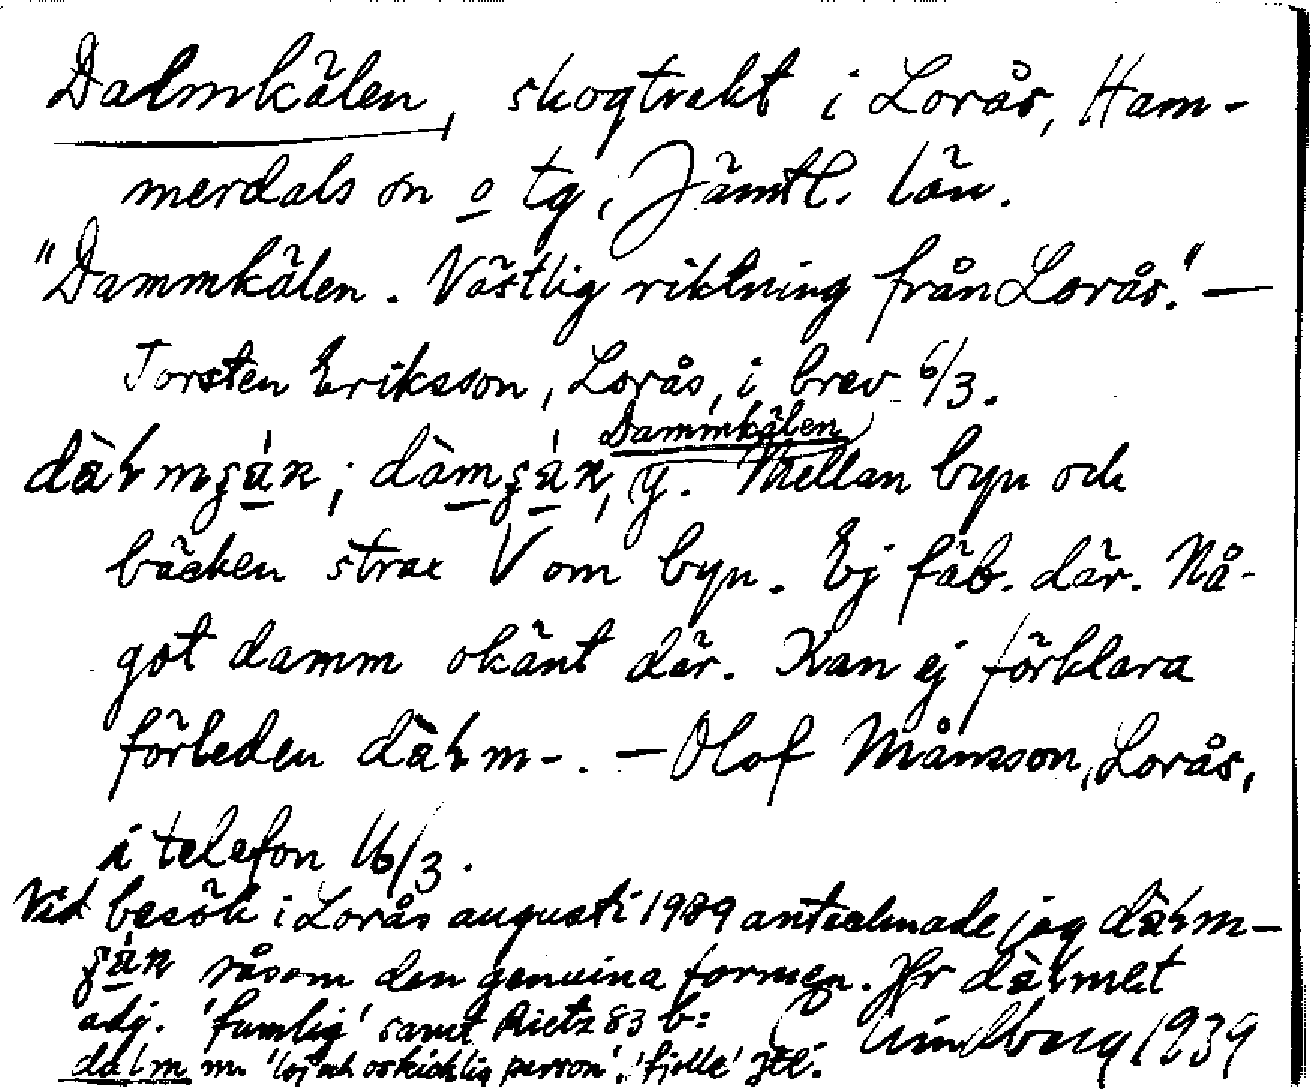 Dalmkälen, skogtrakt i Lorås, Ham-
merdals sn o tg, Jämtl. län.
"Dammkälen. Västlig riktning från Lorås." —
Torsten Eriksson, Lorås, i brev 6/3.
Dammkälen
y. Mellan byn och
bäcken strax V om byn. Ej fäb. där. Nå-
got damm okänt där. Kan ej förklara
förleden dàɫm-. — Olof Månsson, Lorås,
i telefon 16/3.
Vid besök i Lorås augusti 1939 antecknade jag dàɫm-
såsom den genuina formen. Jfr dàɫmet
adj. 'fumlig' samt Rietz 83 b:
dalm m. 'loj och oskicklig person', 'fjolle' Jtl.
Lindberg 1939